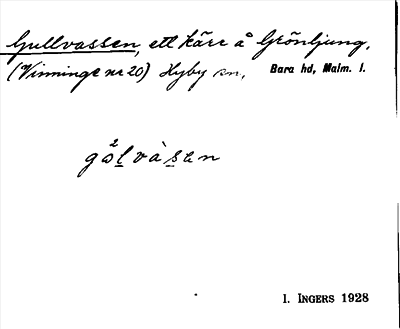 Gullvassen, ett kärr å Grönljung,
(Vinninge nr 20) Hyby sn, Bara hd, Malm. l.
I. INGERS 1928